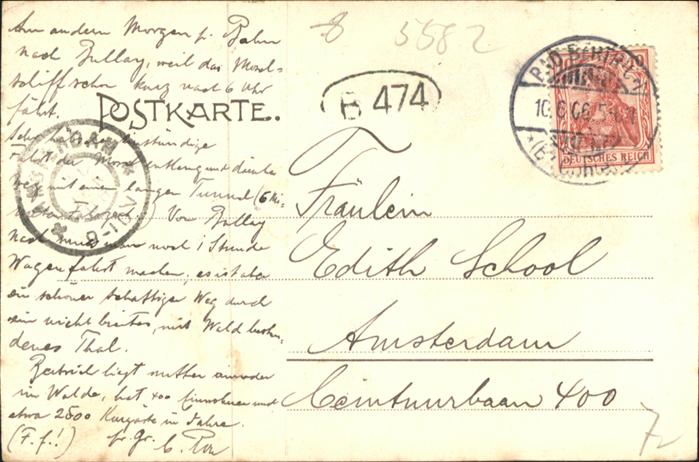 8 5582
Am andern Morgen p. Bahn
nach Bullay, weil das Mosel-
schiff schon kurz nach 6 Uhr
fährt.
POSTKARTE.
B 474
BAD BERTRICH
10.6.06
DEUTSCHES REICH
AMSTERDAM
Fahrt der Mosel entlang und durch
weg mit einem langen Tunnel (6 Mi-
Von Bullay
nach muss man noch 1 Stunde
Wagenfahrt machen, es ist aber
ein schöner schattiger Weg durch
ein nicht breites, mit Wald bestan-
denes Thal.
Bertrich liegt mitten
im Walde, hat 400 Einwohner und
etwa 2800 Kurgäste im Jahre.
(F. f.!) fr. Gr.
Fräulein
Edith School
Amsterdam
Ceintuurbaan 400
72